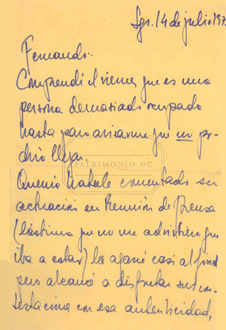 Sgo. 14 de julio 197
Fernando:
Comprendí el viernes que es una
persona demasiado ocupada
hasta para avisarme que no po-
dría llegar.
PATRIMONIO UC
Quería haberle comentado su
actuación en Reunión de Prensa
(lástima que no me advirtieron que
iba a estar) lo agarré casi al final
pero alcancé a disfrutar su con-
testación con esa autenticidad,